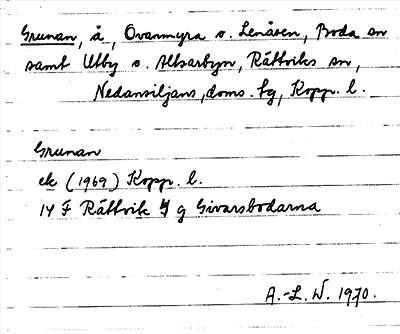 Grunan, å, Ovanmyra o. Lenåsen, Boda sn
samt Utby o. Altsarbyn, Rättviks sn,
Nedansiljans, doms. fg, Kopp. l.
Grunan
ek (1969) Kopp. l.
14 F Rättvik g Sivarsbodarna
A.-L. W. 1970.